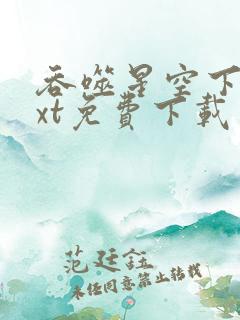 吞噬星空下
xt免费下载
范廷鈺
未径同意禁止转载